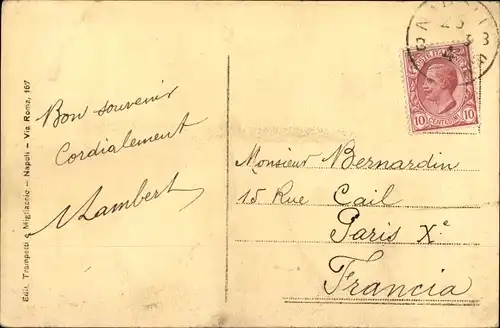 Bon souvenir
Cordialement
Lambert
Edit. Trampetti & Migliaccio - Napoli - Via Roma, 167
NAPOLI
23
POSTE ITALIANE
10 10
CENTESIMI
Monsieur Bernardin
15 Rue Cail
Paris Xe
Francia